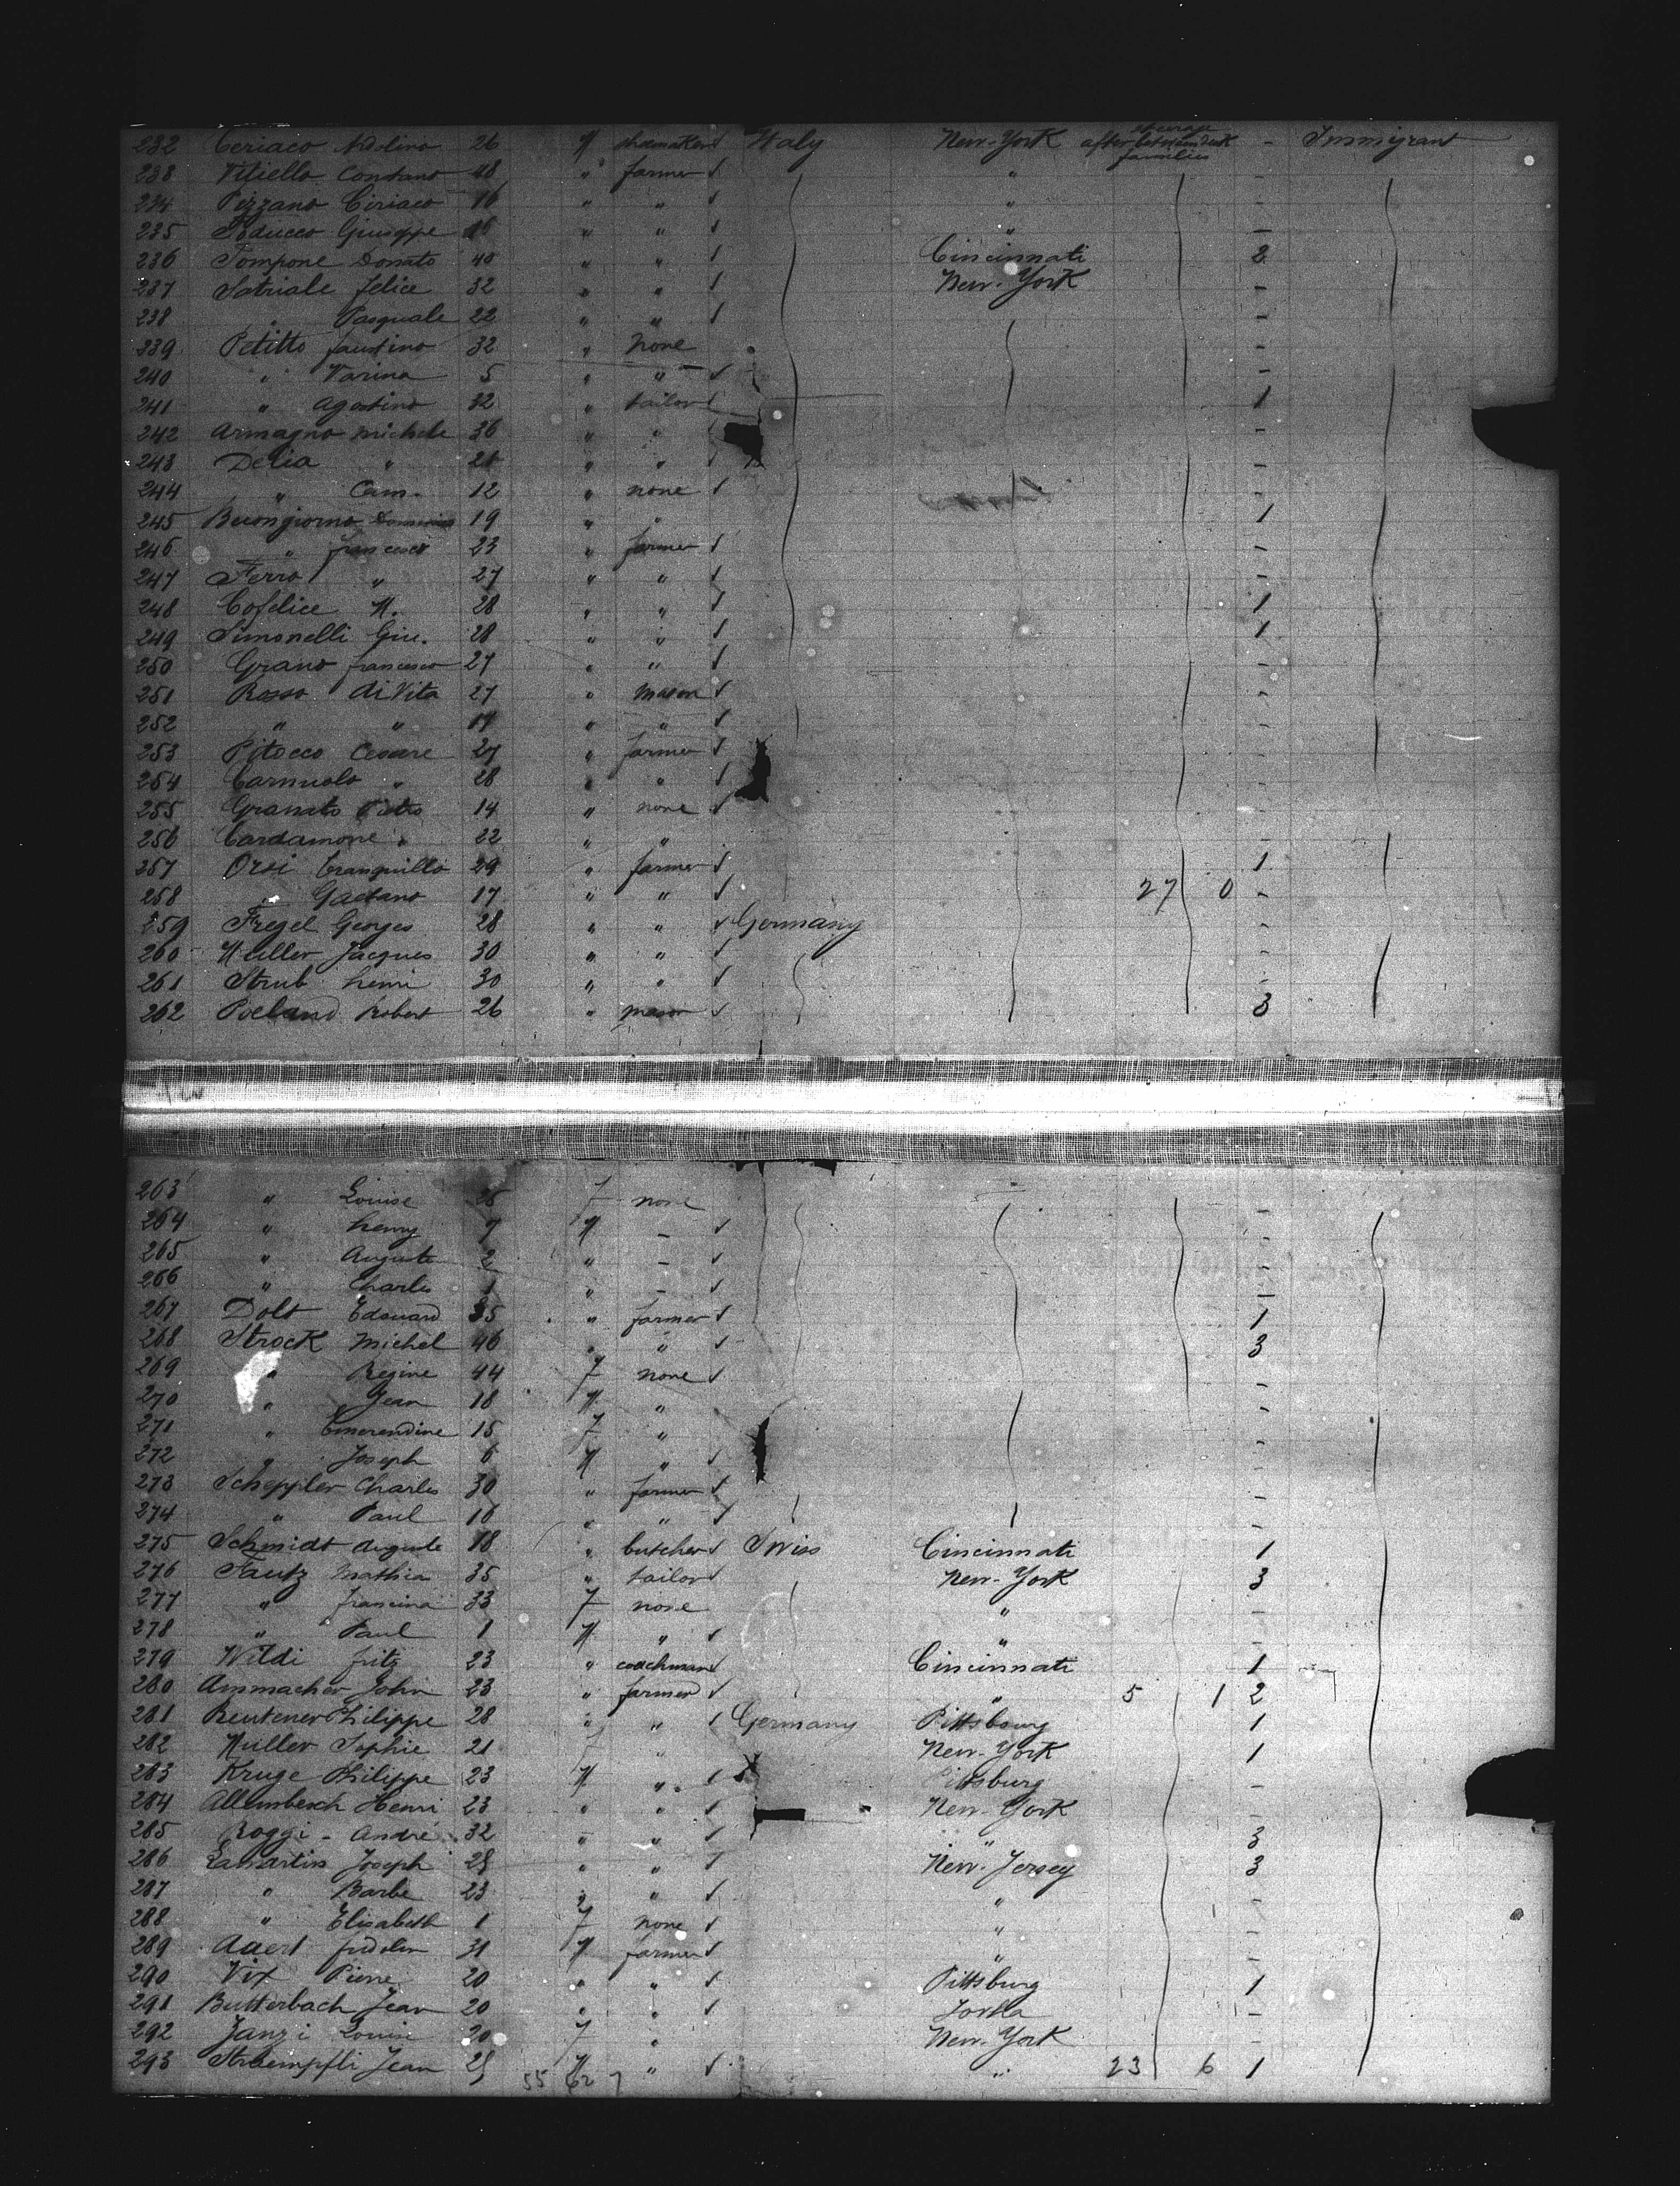 232 Ceriaco Adolino 26 M shoemaker Italy New-York after steerage between deck families - Immigrant
233 Vitiello Constano 48 " farmer " -
234 Pizzano Ciriaco 16 " " " -
235 Poducco Giuseppe 16 " " " -
236 Tompone Donato 40 " " Cincinnati 2
237 Satriale felice 32 " " New-York -
238 " Pasquale 22 " " -
239 Petitto faustino 32 " none -
240 " Varina 5 " " -
241 " Agostino 32 " tailor 1
242 Armagno Michele 36 " " -
243 Delia " 21 " " -
244 " Cam. 12 " none -
245 Buongiorno 19 " " 1
246 " francesco 23 " farmer -
247 Ferro " 27 " " -
248 Cofelice M. 28 " " 1
249 Simonelli Giu. 28 " " 1
250 Grano francesco 27 " " -
251 Rosso di Vita 27 " mason -
252 " " 17 " " -
253 Pitocco Cesare 27 " farmer -
254 Carnuolo " 28 " " -
255 Granato Pietro 14 " none -
256 Cardamone " 22 " " -
257 Orsi Tranquillo 29 " farmer 1
258 " Gaetano 17 " " 27 0 -
259 Fregel Georges 28 " " Germany -
260 Muller Jacques 30 " " -
261 Strub henri 30 " " -
262 Poeland Robert 26 " mason 3
263 " Louise 26 f none -
264 " henry 7 M - -
265 " Auguste 2 " - -
266 " Charles 1 " - -
267 Dolt Edouard 35 " farmer 1
268 Strock Michel 46 " " 3
269 " Regine 44 f none -
270 " Jean 18 M " -
271 " Emerendine 15 f " -
272 " Joseph 6 M " -
273 Scheppler Charles 30 " farmer -
274 " Paul 16 " " -
275 Schmidt Auguste 18 " butcher Swiss Cincinnati 1
276 Tautz Mathia 35 " tailor New-York 3
277 " francina 33 f none " -
278 " Paul 1 M " " -
279 Wildi fritz 23 " coachman Cincinnati 1
280 Ammacher John 23 " farmer " 5 1 2
281 Reutener Philippe 28 " " Germany Pittsbourg 1
282 Muller Sophie 21 f " New-York 1
283 Kruge Philippe 23 M " Pittsburg -
284 Allembesch Henri 23 " " New-York -
285 Roggi - André 32 " " " 3
286 Lamartin Joseph 25 " " New-Jersey 3
287 " Barbe 23 " " -
288 " Elisabeth 1 f none " -
289 Aaert fidelin 31 M farmer " -
290 Vix Pierre 20 " " Pittsburg 1
291 Butterbach Jean 20 " " -
292 Janzi Louise 20 f " New-York -
293 Straempfli Jean 25 M " " 23 6 1
55 62 7